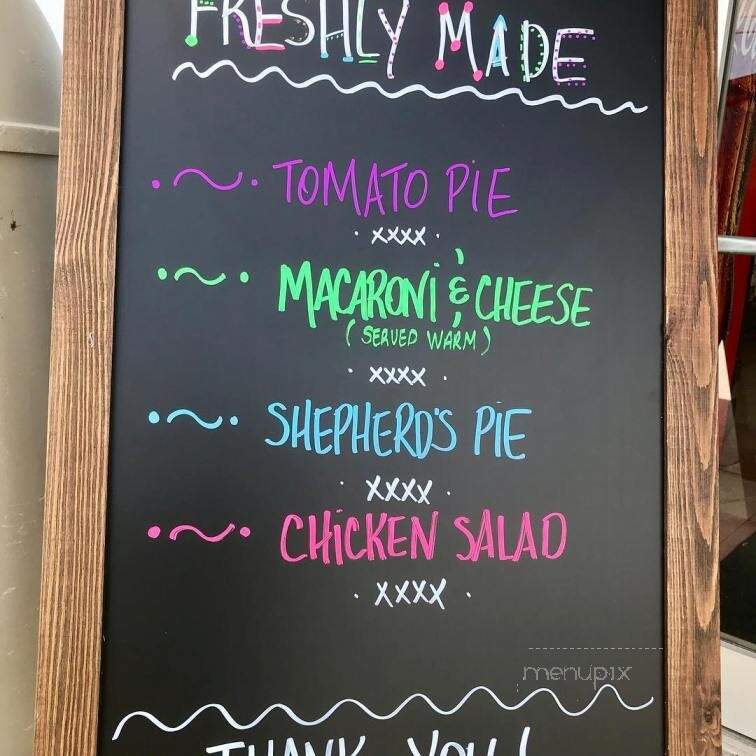 FRESHLY MADE
TOMATO PIE
xxxx
MACARONI & CHEESE
(SERVED WARM)
xxxx
SHEPHERD'S PIE
xxxx
CHICKEN SALAD
xxxx
menupix
THANK YOU!